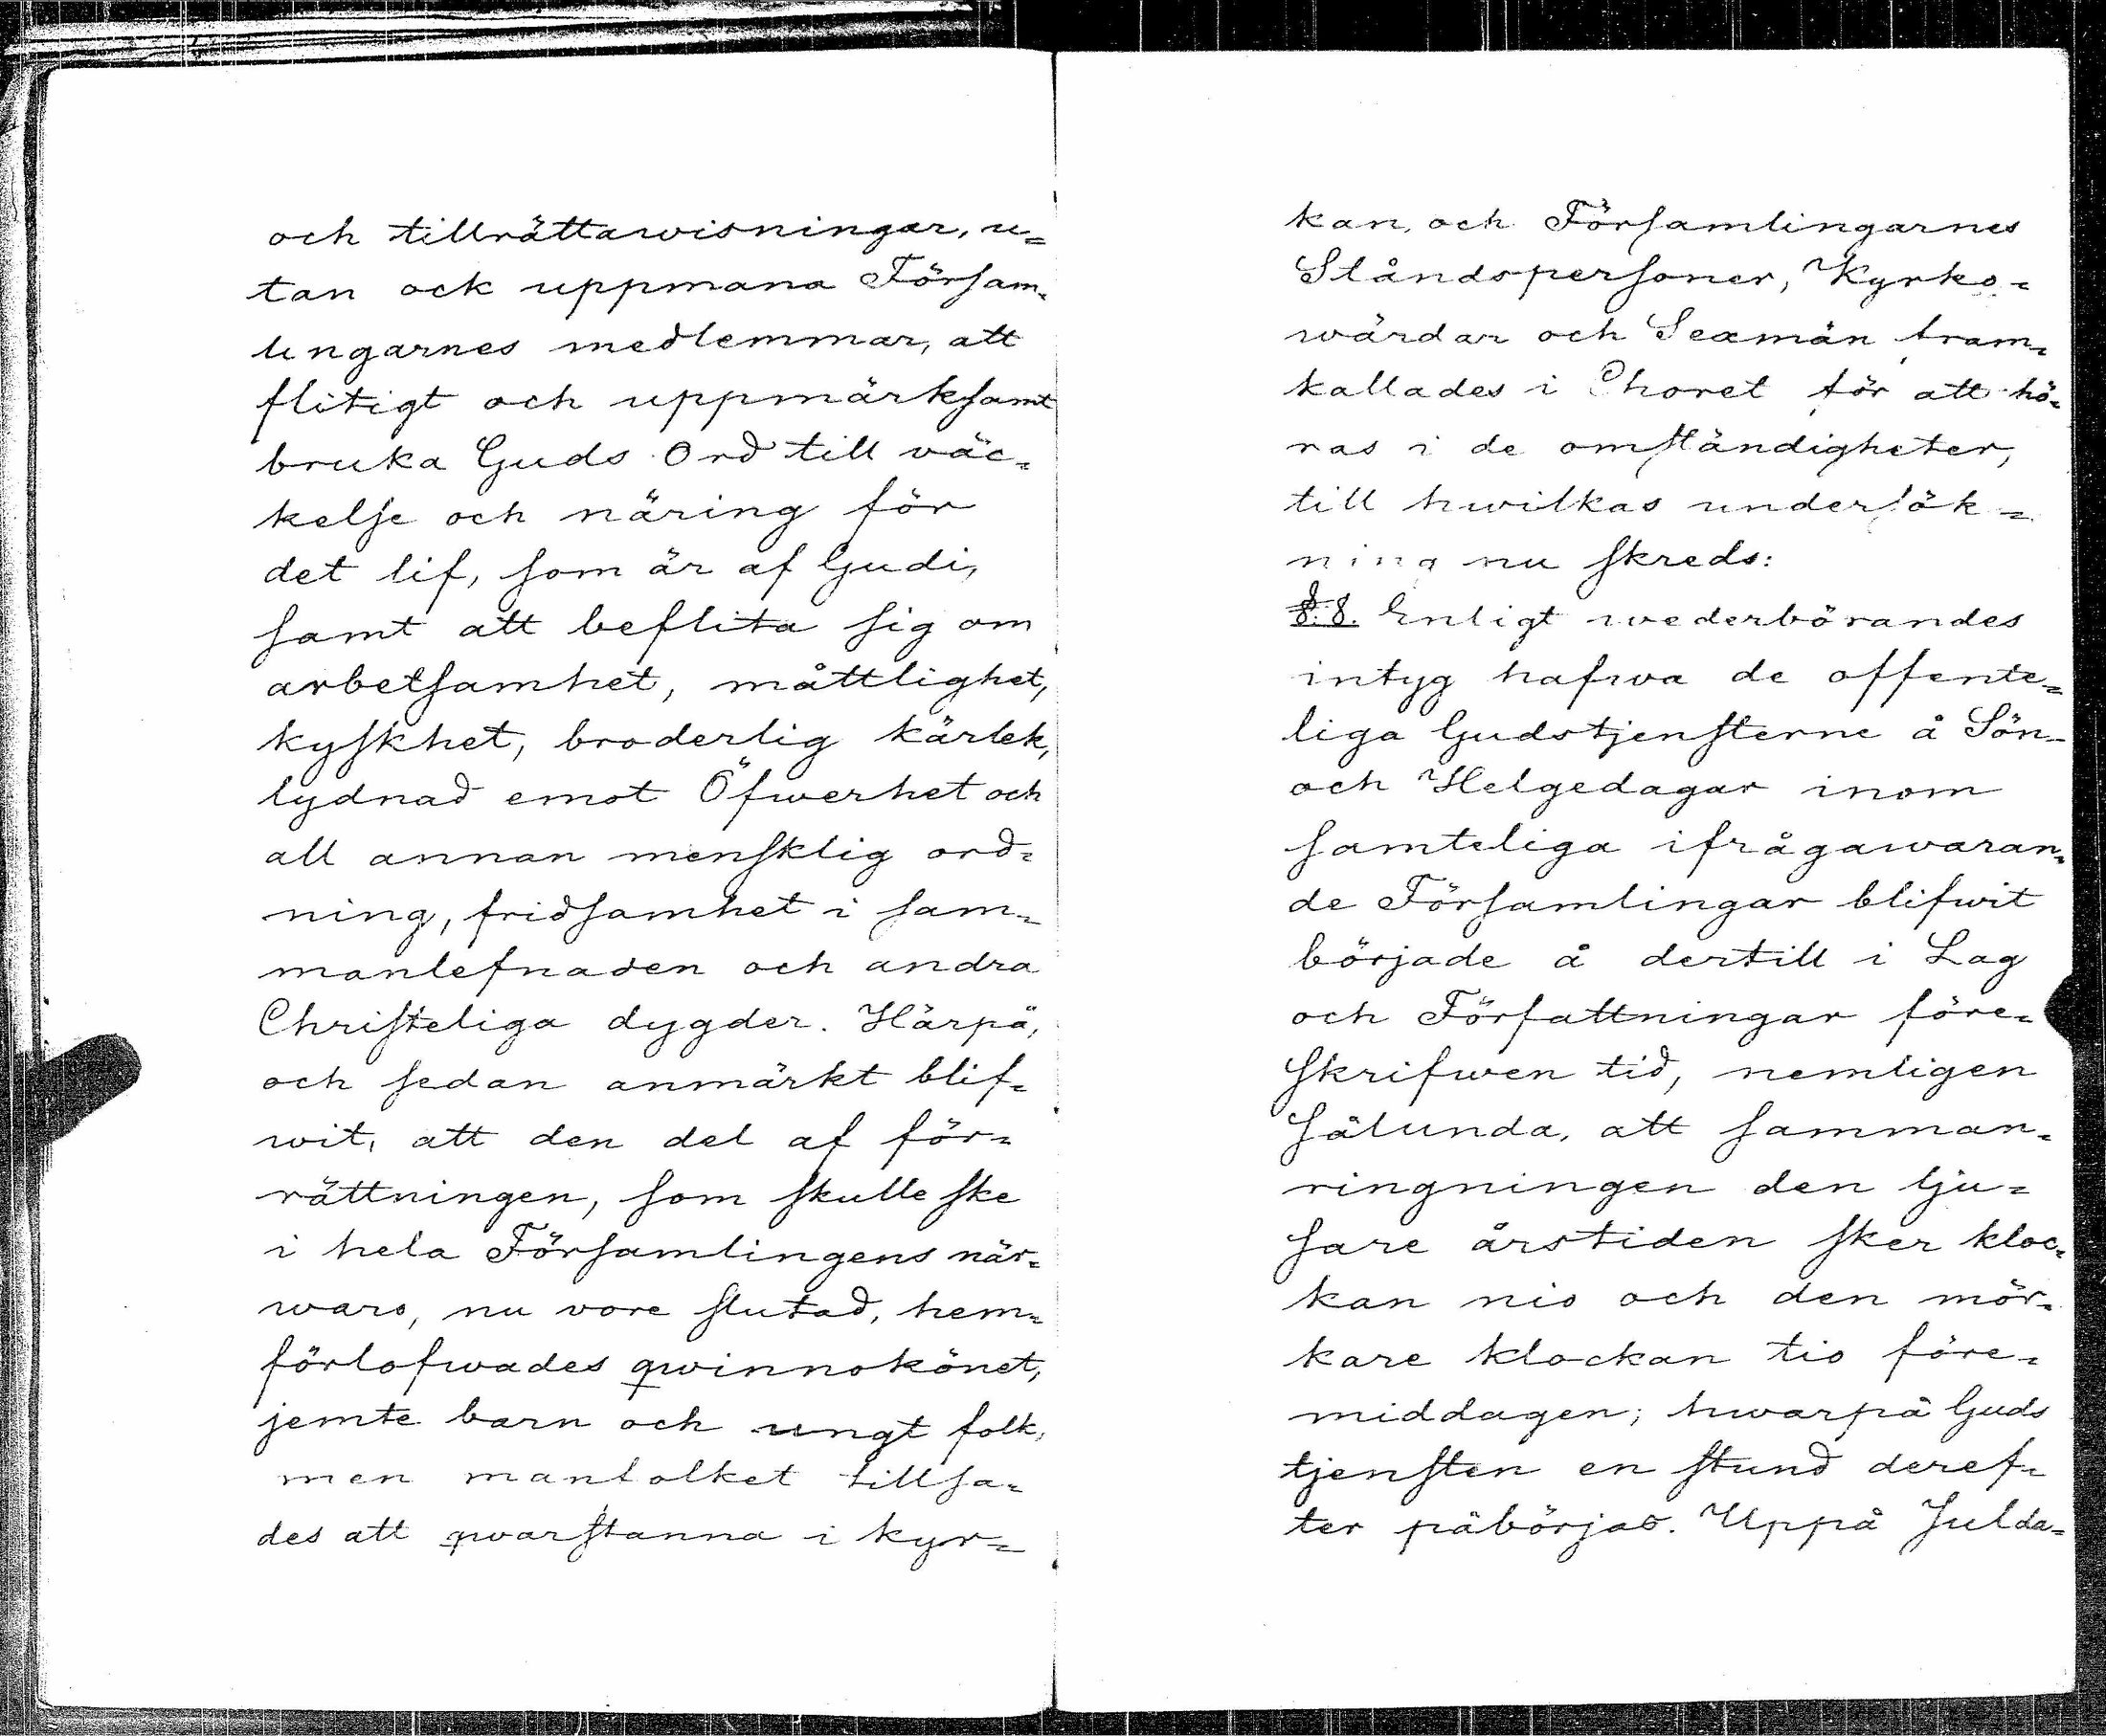 och tillrättawisningar, u=
tan ock uppmana Försam=
lingarnes medlemmar, att
flitigt och uppmärksamt
bruka Guds Ord till väc=
kelse och näring för
det lif, som är af Gudi,
samt att beflita sig om
arbetsamhet, måttlighet,
kyskhet, broderlig kärlek,
lydnad emot Öfwerhet och
all annan mensklig ord=
ning, fridsamhet i sam=
manlefnaden och andra
Christeliga dygder. Härpå,
och sedan anmärkt blif=
wit, att den del af för=
rättningen, som skulle ske
i hela Församlingens när=
waro, nu vore slutad, hem=
förlofwades qwinnokönet,
jemte barn och ungt folk,
men manfolket tillsa=
des att qwarstanna i kyr=
kan, och Församlingarnes
Ståndspersoner, Kyrko=
wärdar och Sexmän fram=
kallades i Choret för att hö=
ras i de omständigheter,
till hwilkas undersök=
ning nu skreds:
§. 8. Enligt wederbörandes
intyg hafwa de offente=
liga Gudstjensterne å Sön=
och Helgedagar inom
samteliga ifrågawaran=
de Församlingar blifwit
började å dertill i Lag
och Författningar före=
skrifwen tid, nemligen
sålunda, att samman=
ringningen den lju=
sare årstiden sker kloc=
kan nio och den mör=
kare klockan tio före=
middagen; hwarpå Guds
tjensten en stund deref=
ter påbörjas. Uppå Julda=